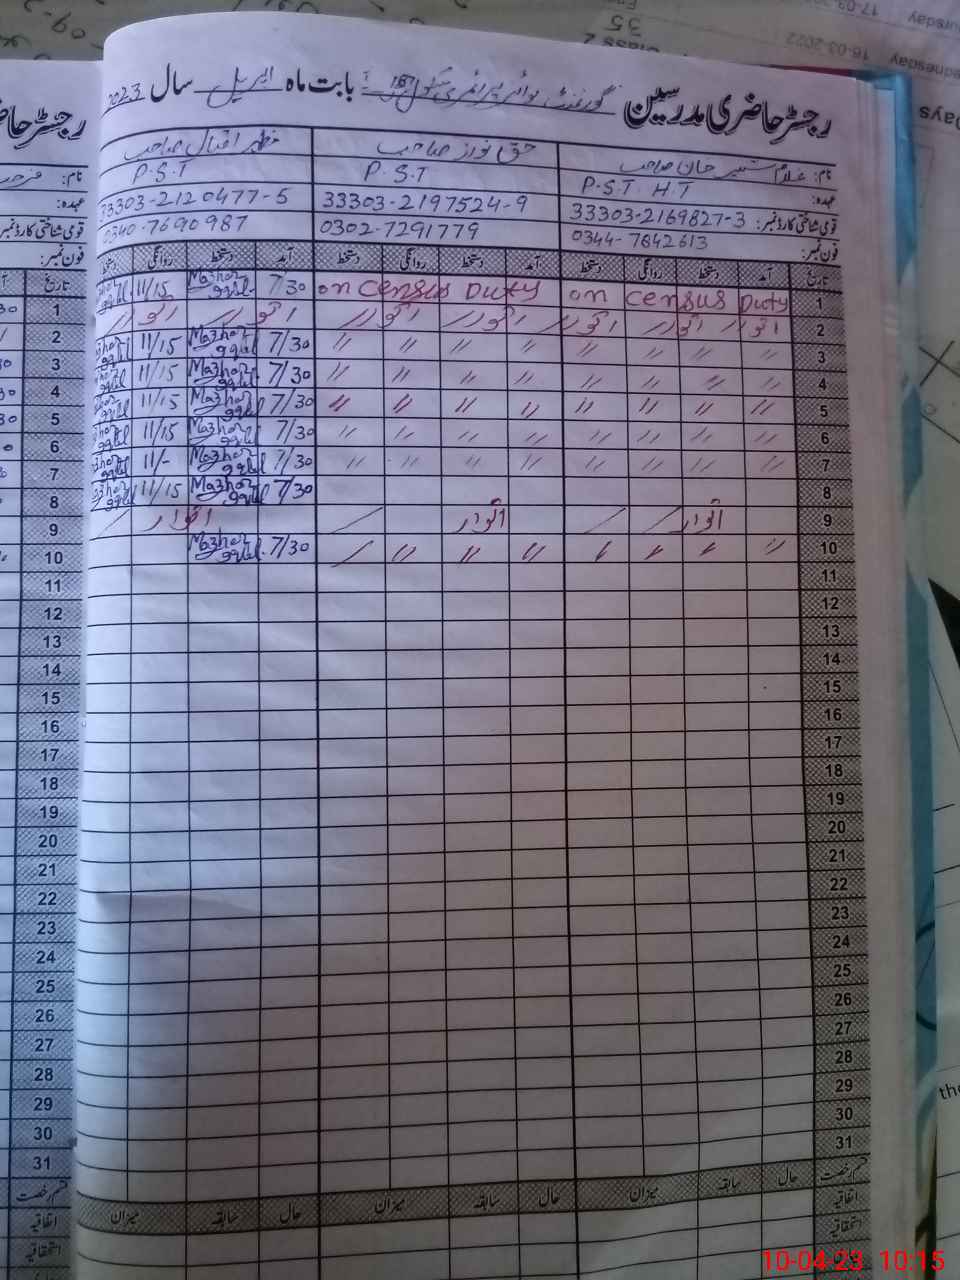 رجسٹر حاضری مدرسین گورنمنٹ بوائز پرائمری سکول بابت ماہ اپریل سال 2023
نام: غلام شبیر خان صاحب حق نواز صاحب مظہر اقبال صاحب
عہدہ: P.S.T H.T P.S.T P.S.T
قومی شناختی کارڈ نمبر: 33303-2169827-3 33303-2197524-9 33303-2120477-5
فون نمبر: 0344-7842613 0302-7291779 0340-7690987
تاریخ آمد دستخط روانگی دستخط آمد دستخط روانگی دستخط آمد دستخط روانگی دستخط
1 on census Duty on census Duty 7/30 Mazhar Iqbal 11/15 Mazhar Iqbal
2 اتوار اتوار اتوار اتوار اتوار اتوار اتوار
3 〃 〃 〃 〃 〃 〃 〃 〃 7/30 Mazhar Iqbal 11/15 Mazhar Iqbal
4 〃 〃 〃 〃 〃 〃 〃 〃 7/30 Mazhar Iqbal 11/15 Mazhar Iqbal
5 〃 〃 〃 〃 〃 〃 〃 〃 7/30 Mazhar Iqbal 11/15 Mazhar Iqbal
6 〃 〃 〃 〃 〃 〃 〃 〃 7/30 Mazhar Iqbal 11/15 Mazhar Iqbal
7 〃 〃 〃 〃 〃 〃 〃 〃 7/30 Mazhar Iqbal 11/- Mazhar Iqbal
8 7/30 Mazhar Iqbal 11/15 Mazhar Iqbal
9 اتوار اتوار اتوار
10 〃 〃 〃 〃 〃 〃 〃 〃 7/30 Mazhar Iqbal
11
12
13
14
15
16
17
18
19
20
21
22
23
24
25
26
27
28
29
30
31
قسم رخصت حال سابقہ میزان حال سابقہ میزان حال سابقہ میزان
اتفاقیہ
استحقاقیہ
رجسٹر حا
نام:
عہدہ:
قومی شناختی کارڈ نمبر:
فون نمبر:
تاریخ
1
2
3
4
5
6
7
8
9
10
11
12
13
14
15
16
17
18
19
20
21
22
23
24
25
26
27
28
29
30
31
قسم رخصت
اتفاقیہ
استحقاقیہ
35
Class 2
16-03-2022
Days
the
10-04-23 10:15